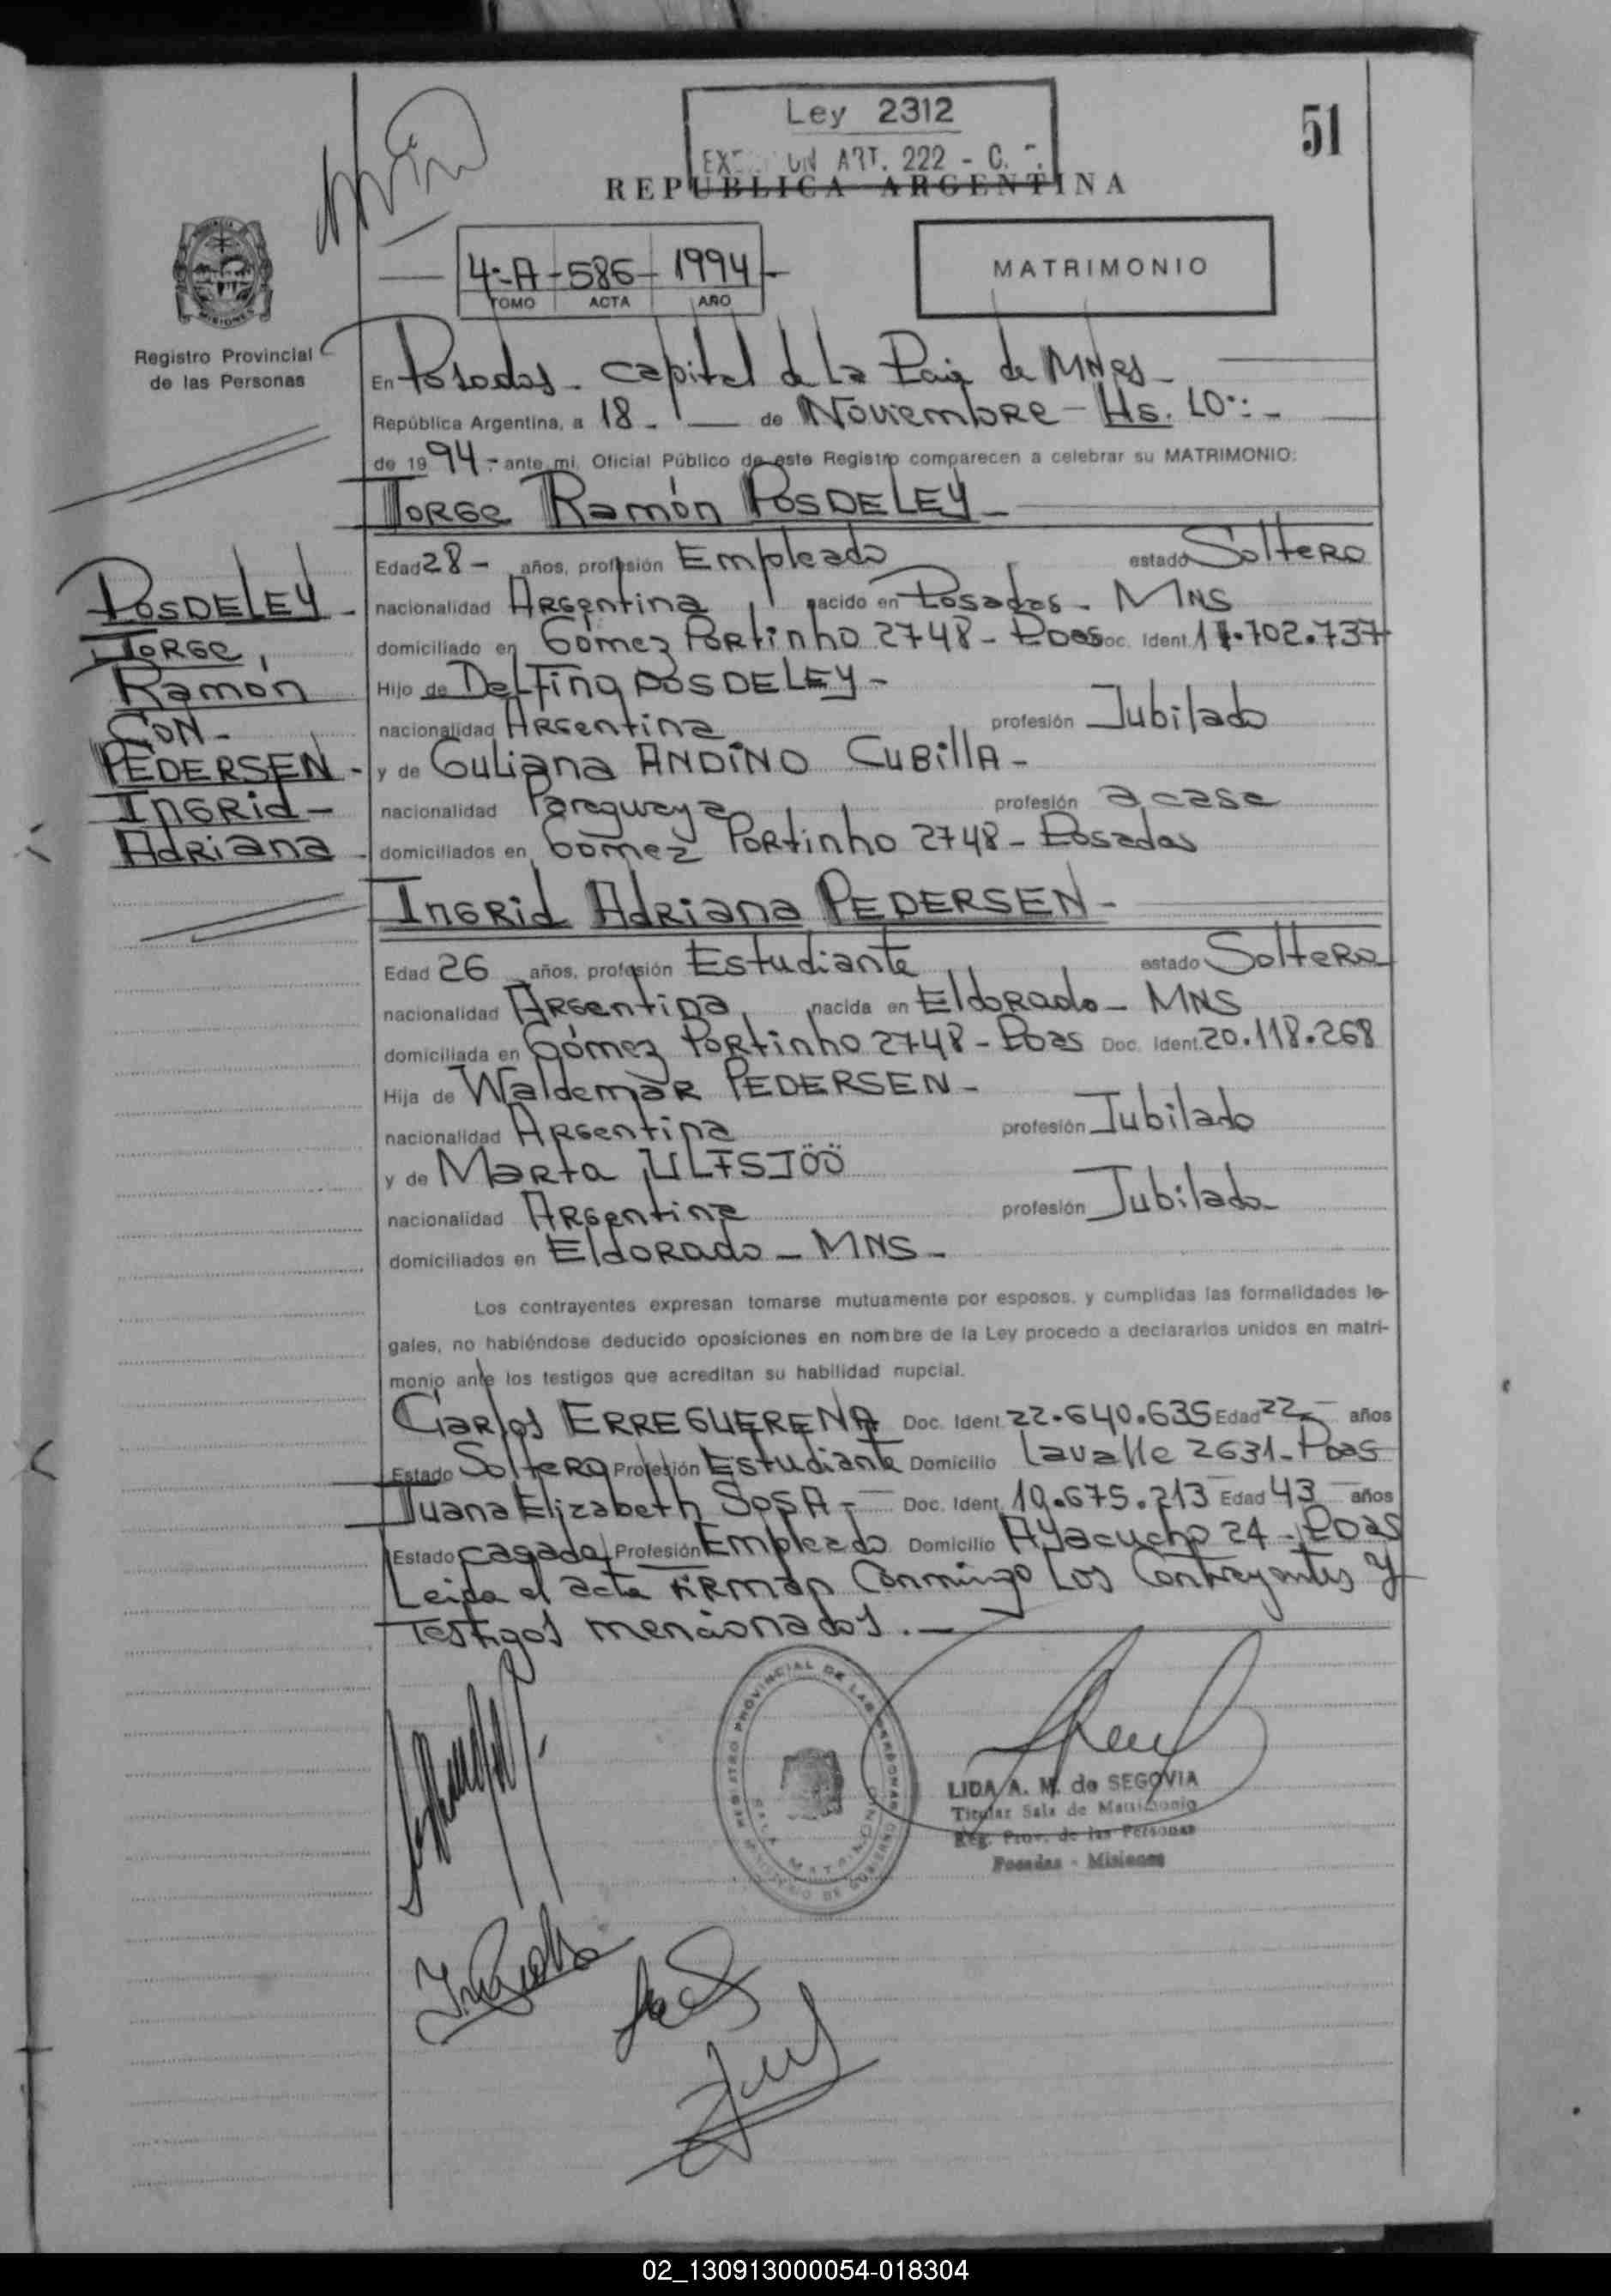 Ley 2312
ART. 222 - C.
51
REPUBLICA ARGENTINA
4-A - 586 - 1994 -
TOMO ACTA AÑO
MATRIMONIO
Registro Provincial
de las Personas
En Posadas - capital de la de Mnes -
República Argentina, a 18 - de Noviembre - Hs. 10:: -
de 1994 - ante mi, Oficial Público de este Registro comparecen a celebrar su MATRIMONIO:
Jorge Ramón POSDELEY -
Edad 28 - años, profesión Empleado estado Soltero
nacionalidad Argentina nacido en Posadas - MNS
domiciliado en Gómez Portinho 2748 - Pdas Doc. Ident. 17.702.737
Hijo de Delfina POSDELEY -
nacionalidad Argentina profesión Jubilado
y de Guliana ANDINO CUBIllA -
nacionalidad Paraguaya profesión a casa
domiciliados en Gomez Portinho 2748 - Posadas
POSDELEY -
Jorge,
Ramón
CON -
PEDERSEN -
Ingrid -
Adriana -
Ingrid Adriana PEDERSEN -
Edad 26 años, profesión Estudiante estado Soltera
nacionalidad Argentina nacida en Eldorado - MNS
domiciliada en Gómez Portinho 2748 - Pdas Doc. Ident. 20.118.268
Hija de Waldemar PEDERSEN -
nacionalidad Argentina profesión Jubilado
y de Marta ULFSJÖÖ
nacionalidad Argentina profesión Jubilada
domiciliados en Eldorado - MNS -
Los contrayentes expresan tomarse mutuamente por esposos, y cumplidas las formalidades le-
gales, no habiéndose deducido oposiciones en nombre de la Ley procedo a declararlos unidos en matri-
monio ante los testigos que acreditan su habilidad nupcial.
Carlos ERREGUERENA Doc. Ident. 22.640.635 Edad 22 - años
Estado Soltero Profesión Estudiante Domicilio Lavalle 2631 - Pdas
Juana Elizabeth SOSA - Doc. Ident. 10.675.213 Edad 43 años
Estado casada Profesión Empleado Domicilio Ayacucho 24 - Pdas
Leida el acta firman Conmigo Los Contrayentes y
Testigos mencionados. -
REGISTRO PROVINCIAL DE LAS PERSONAS
LIDA A. M. de SEGOVIA
Titular Sala de Matrimonio
Reg. Prov. de las Personas
Posadas - Misiones
02_130913000054-018304